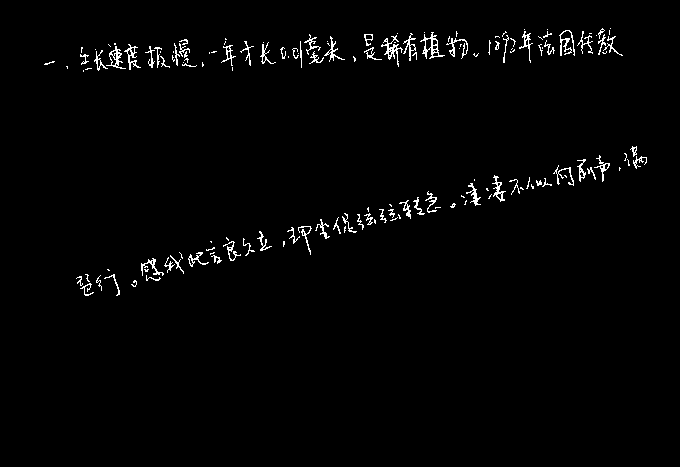 一，生长速度极慢，一年才长0.01毫米，是稀有植物。1892年法国传教
琶行。感我此言良久立，却坐促弦弦转急。凄凄不似向前声，满